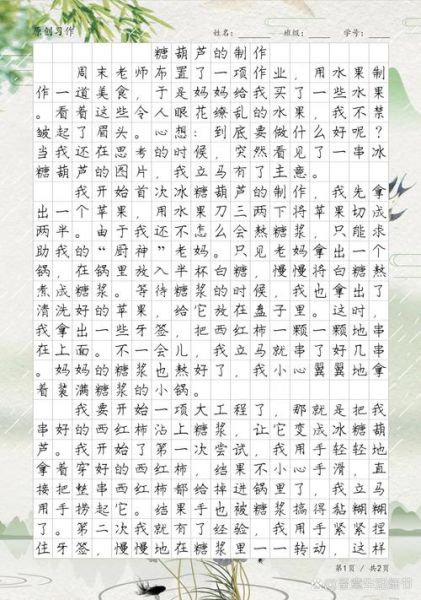 原创习作 姓名： 班级： 学号：
糖葫芦的制作
周末老师布置了一项作业，用水果制
作一道美食，于是妈妈给我买了一些水果
。看着这些令人眼花缭乱的水果，我不禁
皱起了眉头。心想：到底要做什么好呢？
当我还在思考的时候，突然看见了一串冰
糖葫芦的图片，我立马有了主意。
我开始首次冰糖葫芦的制作，我先拿
出一个苹果，用水果刀三两下将苹果切成
两半。由于我还不怎么会熬糖浆，只能求
助我的“厨神”老妈。只见老妈拿出一个
锅，在锅里放入半杯白糖，慢慢将白糖熬
煮成糖浆。等待糖浆的时候，我也拿出了
清洗好的苹果，给它放在盘子里。这时，
我拿出一些牙签，把西红柿一颗一颗地串
在上面。不一会儿，我立马就串了好几串
。妈妈的糖浆也熬好了，我小心翼翼地拿
着装满糖浆的小锅。
我要开始一项大工程了，那就是把我
串好的西红柿沾上糖浆，让它变成冰糖葫
芦。我开始了第一次尝试，我用手轻轻地
拿着穿好的西红柿，结果不小心手滑，直
接把整串西红柿都给掉进锅里了，我立马
用手捞起它。结果手也被糖浆搞得黏糊糊
了。第二次我就有了经验，我用手紧紧捏
住牙签，慢慢地在糖浆里一一转动，这样
第1页 / 共2页